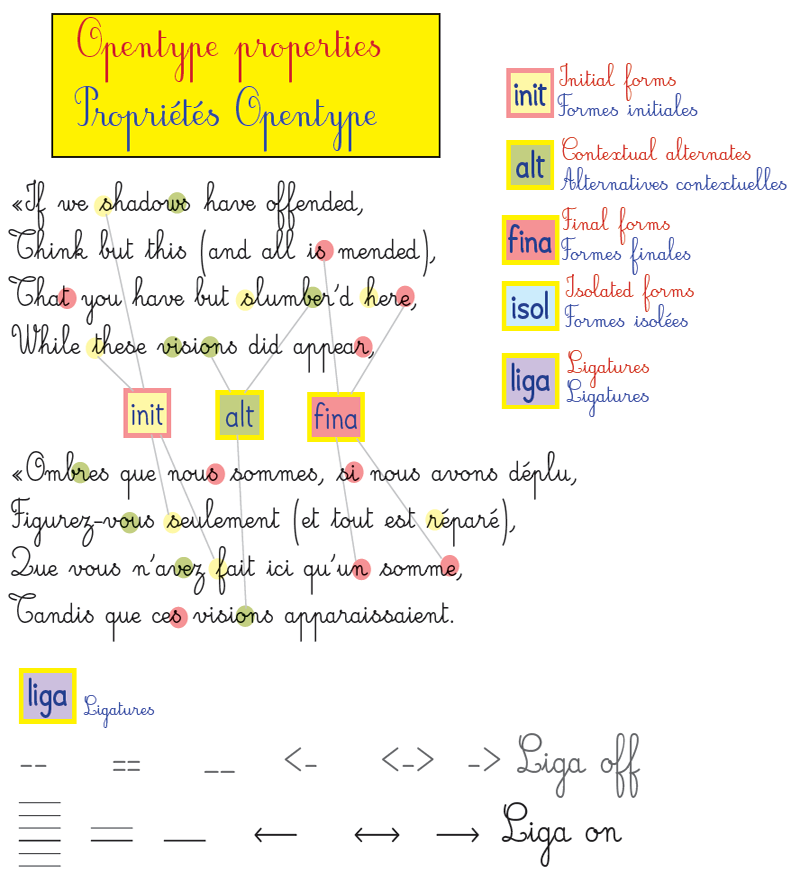 Opentype properties
Propriétés Opentype
init
Initial forms
Formes initiales
alt
Contextual alternates
Alternatives contextuelles
fina
Final forms
Formes finales
isol
Isolated forms
Formes isolées
liga
Ligatures
Ligatures
«If we shadows have offended,
Think but this (and all is mended),
That you have but slumber'd here,
While these visions did appear,
init alt fina
«Ombres que nous sommes, si nous avons déplu,
Figurez-vous seulement (et tout est réparé),
Que vous n'avez fait ici qu'un somme,
Tandis que ces visions apparaissaient.
liga Ligatures
-- == __ <- <-> -> Liga off
← ↔ → Liga on